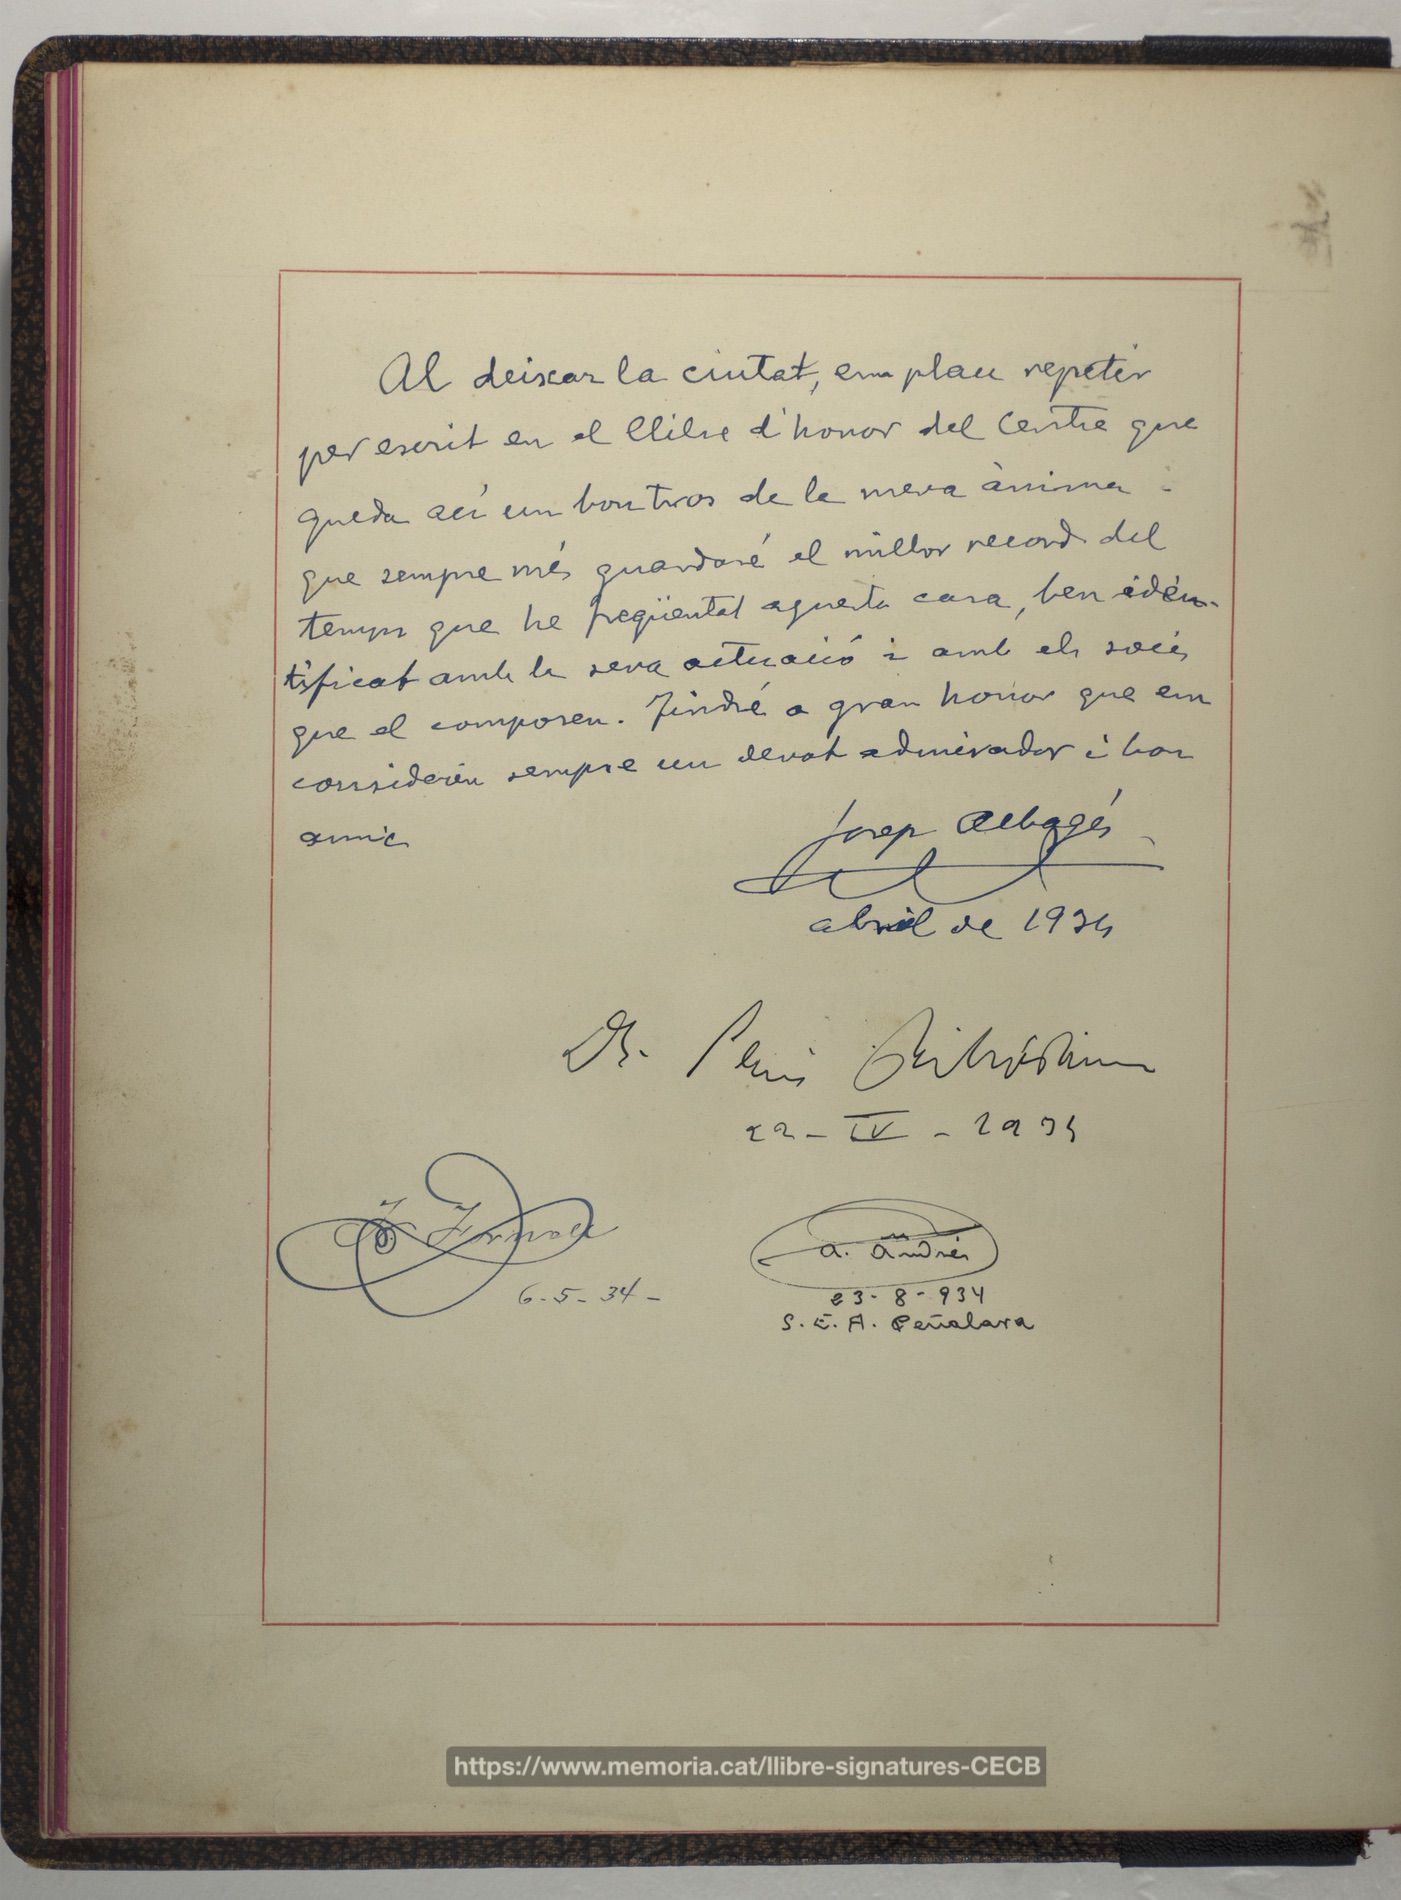 Al deixar la ciutat, em plau repetir
per escrit en el llibre d'honor del Centre que
queda ací un bon tros de la meva ànima i
que sempre més guardaré el millor record del
temps que he freqüentat aquesta casa, ben iden-
tificat amb la seva actuació i amb els socis
que el composen. Tindré a gran honor que em
considerin sempre un devot admirador i bon
amic
Josep Albagés
abril de 1934
Dr.
22-IV-1934
6-5-34-
A. Andrés
23-8-934
S.E.A. Peñalara
https://www.memoria.cat/llibre-signatures-CECB